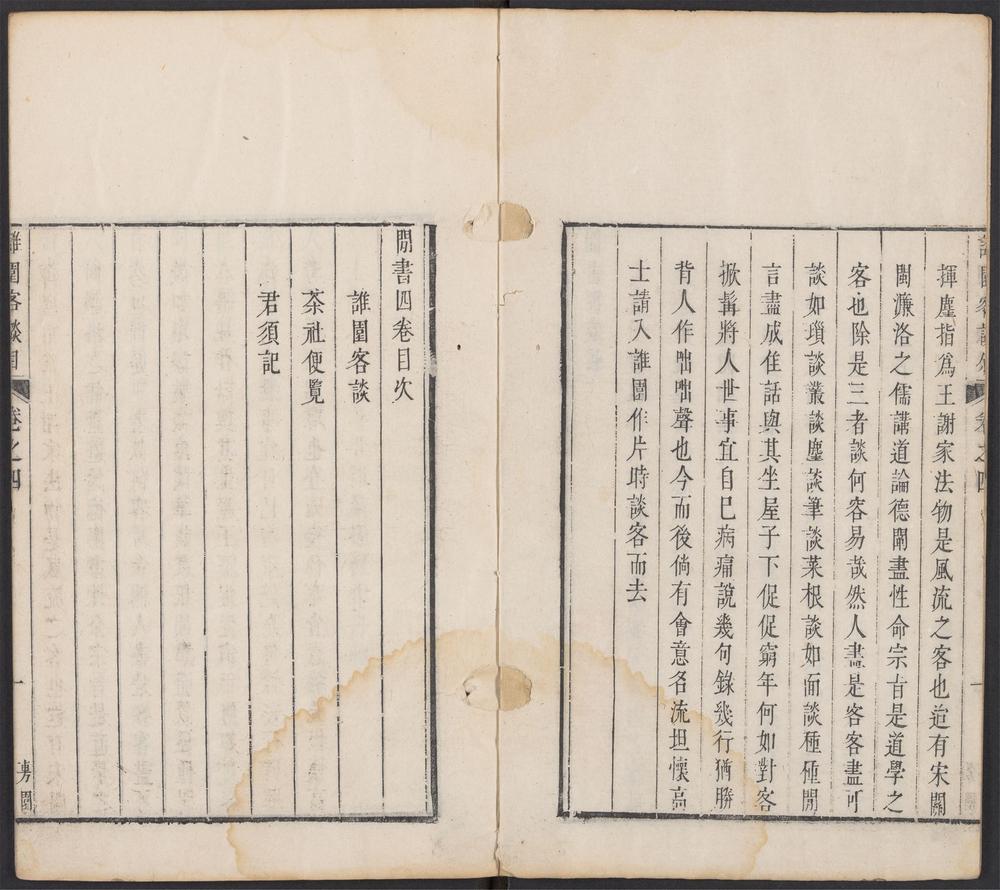 揮麈指爲王謝家法物是風流之客也迨有宋關
閩濂洛之儒講道論德闡盡性命宗旨是道學之
客也除是三者談何容易哉然人盡是客客盡可
談如瑣談叢談麈談筆談菜根談如面談種種閒
言盡成佳話與其坐屋子下促促窮年何如對客
掀髯將人世事宜自己病痛說幾句錄幾行猶勝
背人作咄咄聲也今而後倘有會意名流坦懷高
士請入誰園作片時談客而去
卷之四
一
閒書四卷目次
誰園客談
茶社便覽
君須記
誰園客談目
卷之四
一